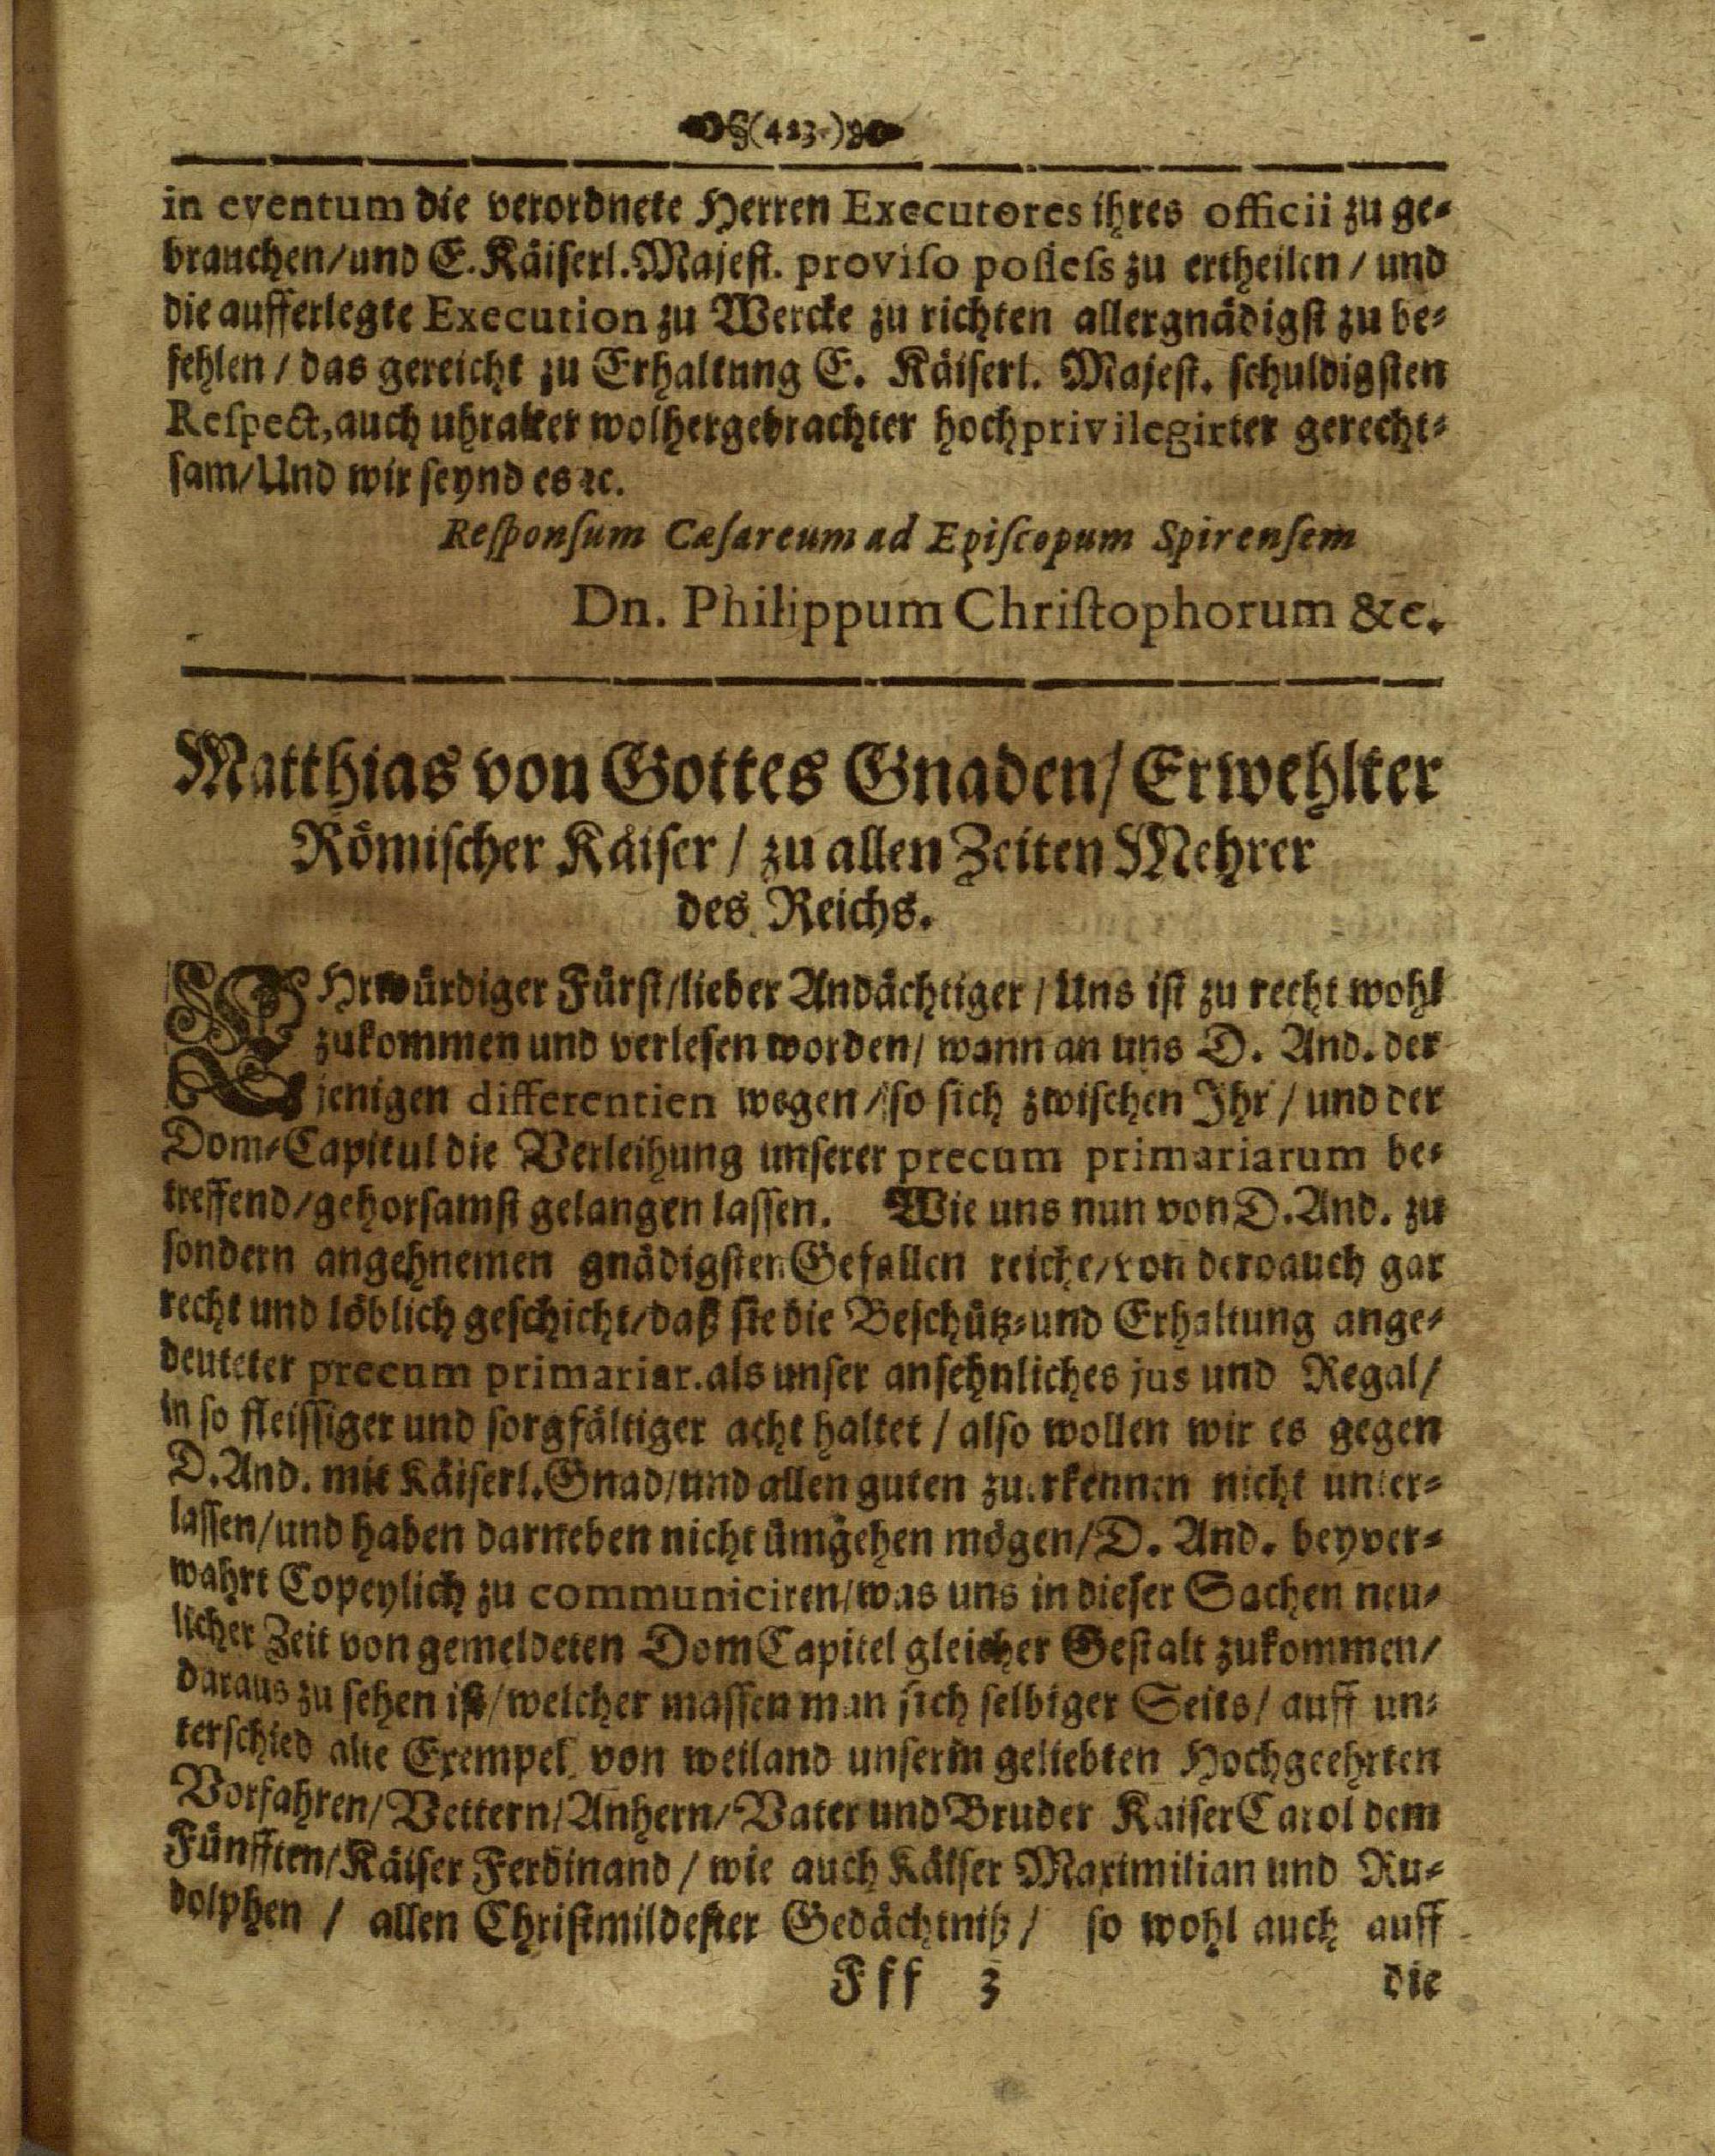 (413.)
in eventum die verordnete Herren Executores ihres officii zu ge-
brauchen/und E. Käiserl. Majest. proviso possess zu ertheilen / und
die aufferlegte Execution zu Wercke zu richten allergnädigst zu be-
fehlen / das gereicht zu Erhaltung E. Käiserl. Majest. schuldigsten
Respect, auch uhralter wolhergebrachter hochprivilegirter gerecht-
sam/Und wir seynd es ꝛc.
Responsum Cæsareum ad Episcopum Spirensem
Dn. Philippum Christophorum &c.
Matthias von Gottes Gnaden/ Erwehlter
Römischer Käiser / zu allen Zeiten Mehrer
des Reichs.
EHrwürdiger Fürst/lieber Andächtiger / Uns ist zu recht wohl
zukommen und verlesen worden/ wann an uns D. And. der
jenigen differentien wegen / so sich zwischen Ihr / und der
Dom-Capitul die Verleihung unserer precum primariarum be-
treffend/gehorsamst gelangen lassen. Wie uns nun von D. And. zu
sondern angehnemen gnädigsten Gefallen reiche/von dero auch gar
recht und löblich geschicht/daß sie die Beschütz-und Erhaltung ange-
deuteter precum primariar. als unser ansehnliches jus und Regal/
in so fleissiger und sorgfältiger acht haltet / also wollen wir es gegen
D. And. mit Käiserl. Gnad/und allen guten zu erkennen nicht unter-
lassen/und haben darneben nicht ümgehen mögen/D. And. beyver-
wahrt Copeylich zu communiciren/was uns in dieser Sachen neu-
licher Zeit von gemeldeten Dom Capitel gleicher Gestalt zukommen/
daraus zu sehen ist/welcher massen man sich selbiger Seits/ auff un-
terschied alte Exempel von weiland unserm geliebten Hochgeehrten
Vorfahren/Vettern/Anhern/Vater und Bruder Kaiser Carol dem
Fünfften/Käiser Ferdinand / wie auch Käiser Maximilian und Ru-
dolphen / allen Christmildester Gedächtniß / so wohl auch auff
Fff 3 die